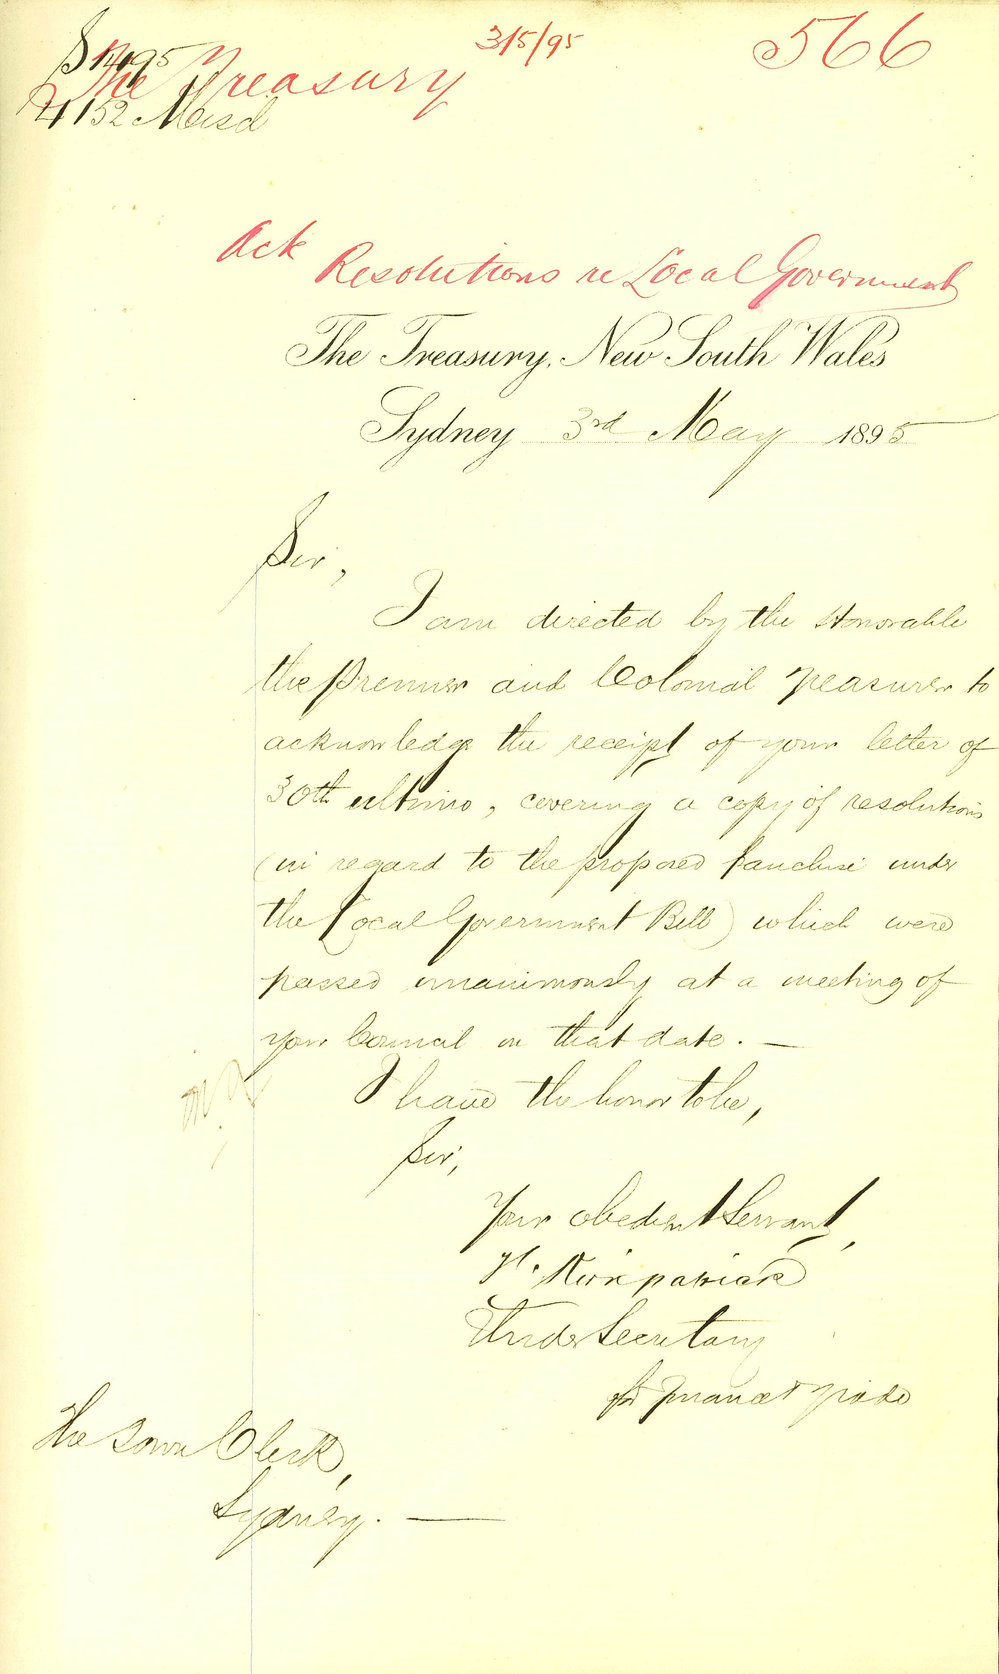 3/5/95
566
The Treasury
4152 Misd
Ack
Resolutions re Local Government
The Treasury, New South Wales
Sydney 3rd May 1895
Sir,
I am directed by the Honorable
the Premier and Colonial Treasurer to
acknowledge the receipt of your letter of
30th ultimo, covering a copy of resolutions
(in regard to the proposed franchise under
the Local Government Bill) which were
passed unanimously at a meeting of
your Council on that date. —
I have the honor to be,
Sir,
Your obedient Servant,
Kirkpatrick
Under Secretary
for Finance & Trade
The Town Clerk,
Sydney. —